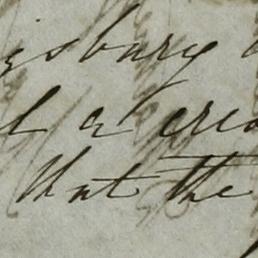 sbury
a crea
that the